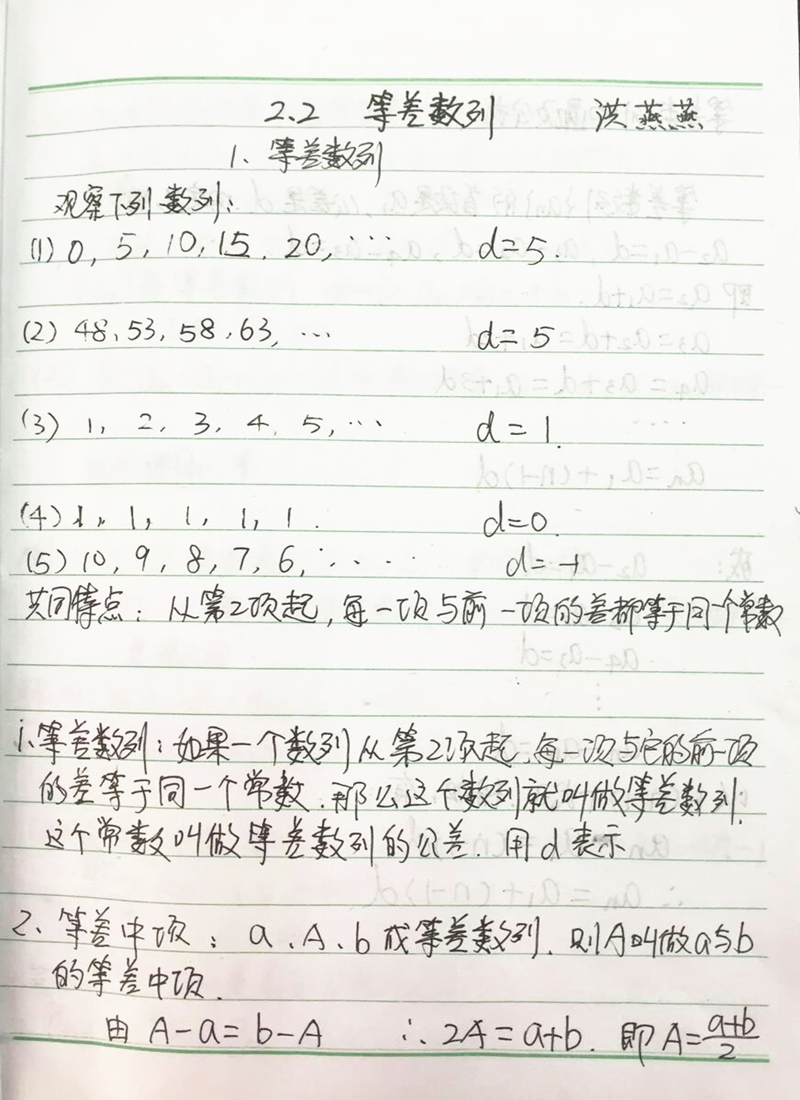 2.2 等差数列 洪燕燕
1、等差数列
观察下列数列:
(1) 0, 5, 10, 15, 20, … d=5.
(2) 48, 53, 58, 63, … d=5
(3) 1, 2, 3, 4, 5, … d=1.
(4) 1, 1, 1, 1, 1. d=0.
(5) 10, 9, 8, 7, 6, …. d=-1
共同特点: 从第2项起, 每一项与前一项的差都等于同一个常数
1. 等差数列: 如果一个数列从第2项起, 每一项与它的前一项
的差等于同一个常数, 那么这个数列就叫做等差数列.
这个常数叫做等差数列的公差. 用d表示
2、等差中项: a、A、b成等差数列. 则A叫做a与b
的等差中项.
由 A-a=b-A ∴2A=a+b. 即A=\frac{a+b}{2}